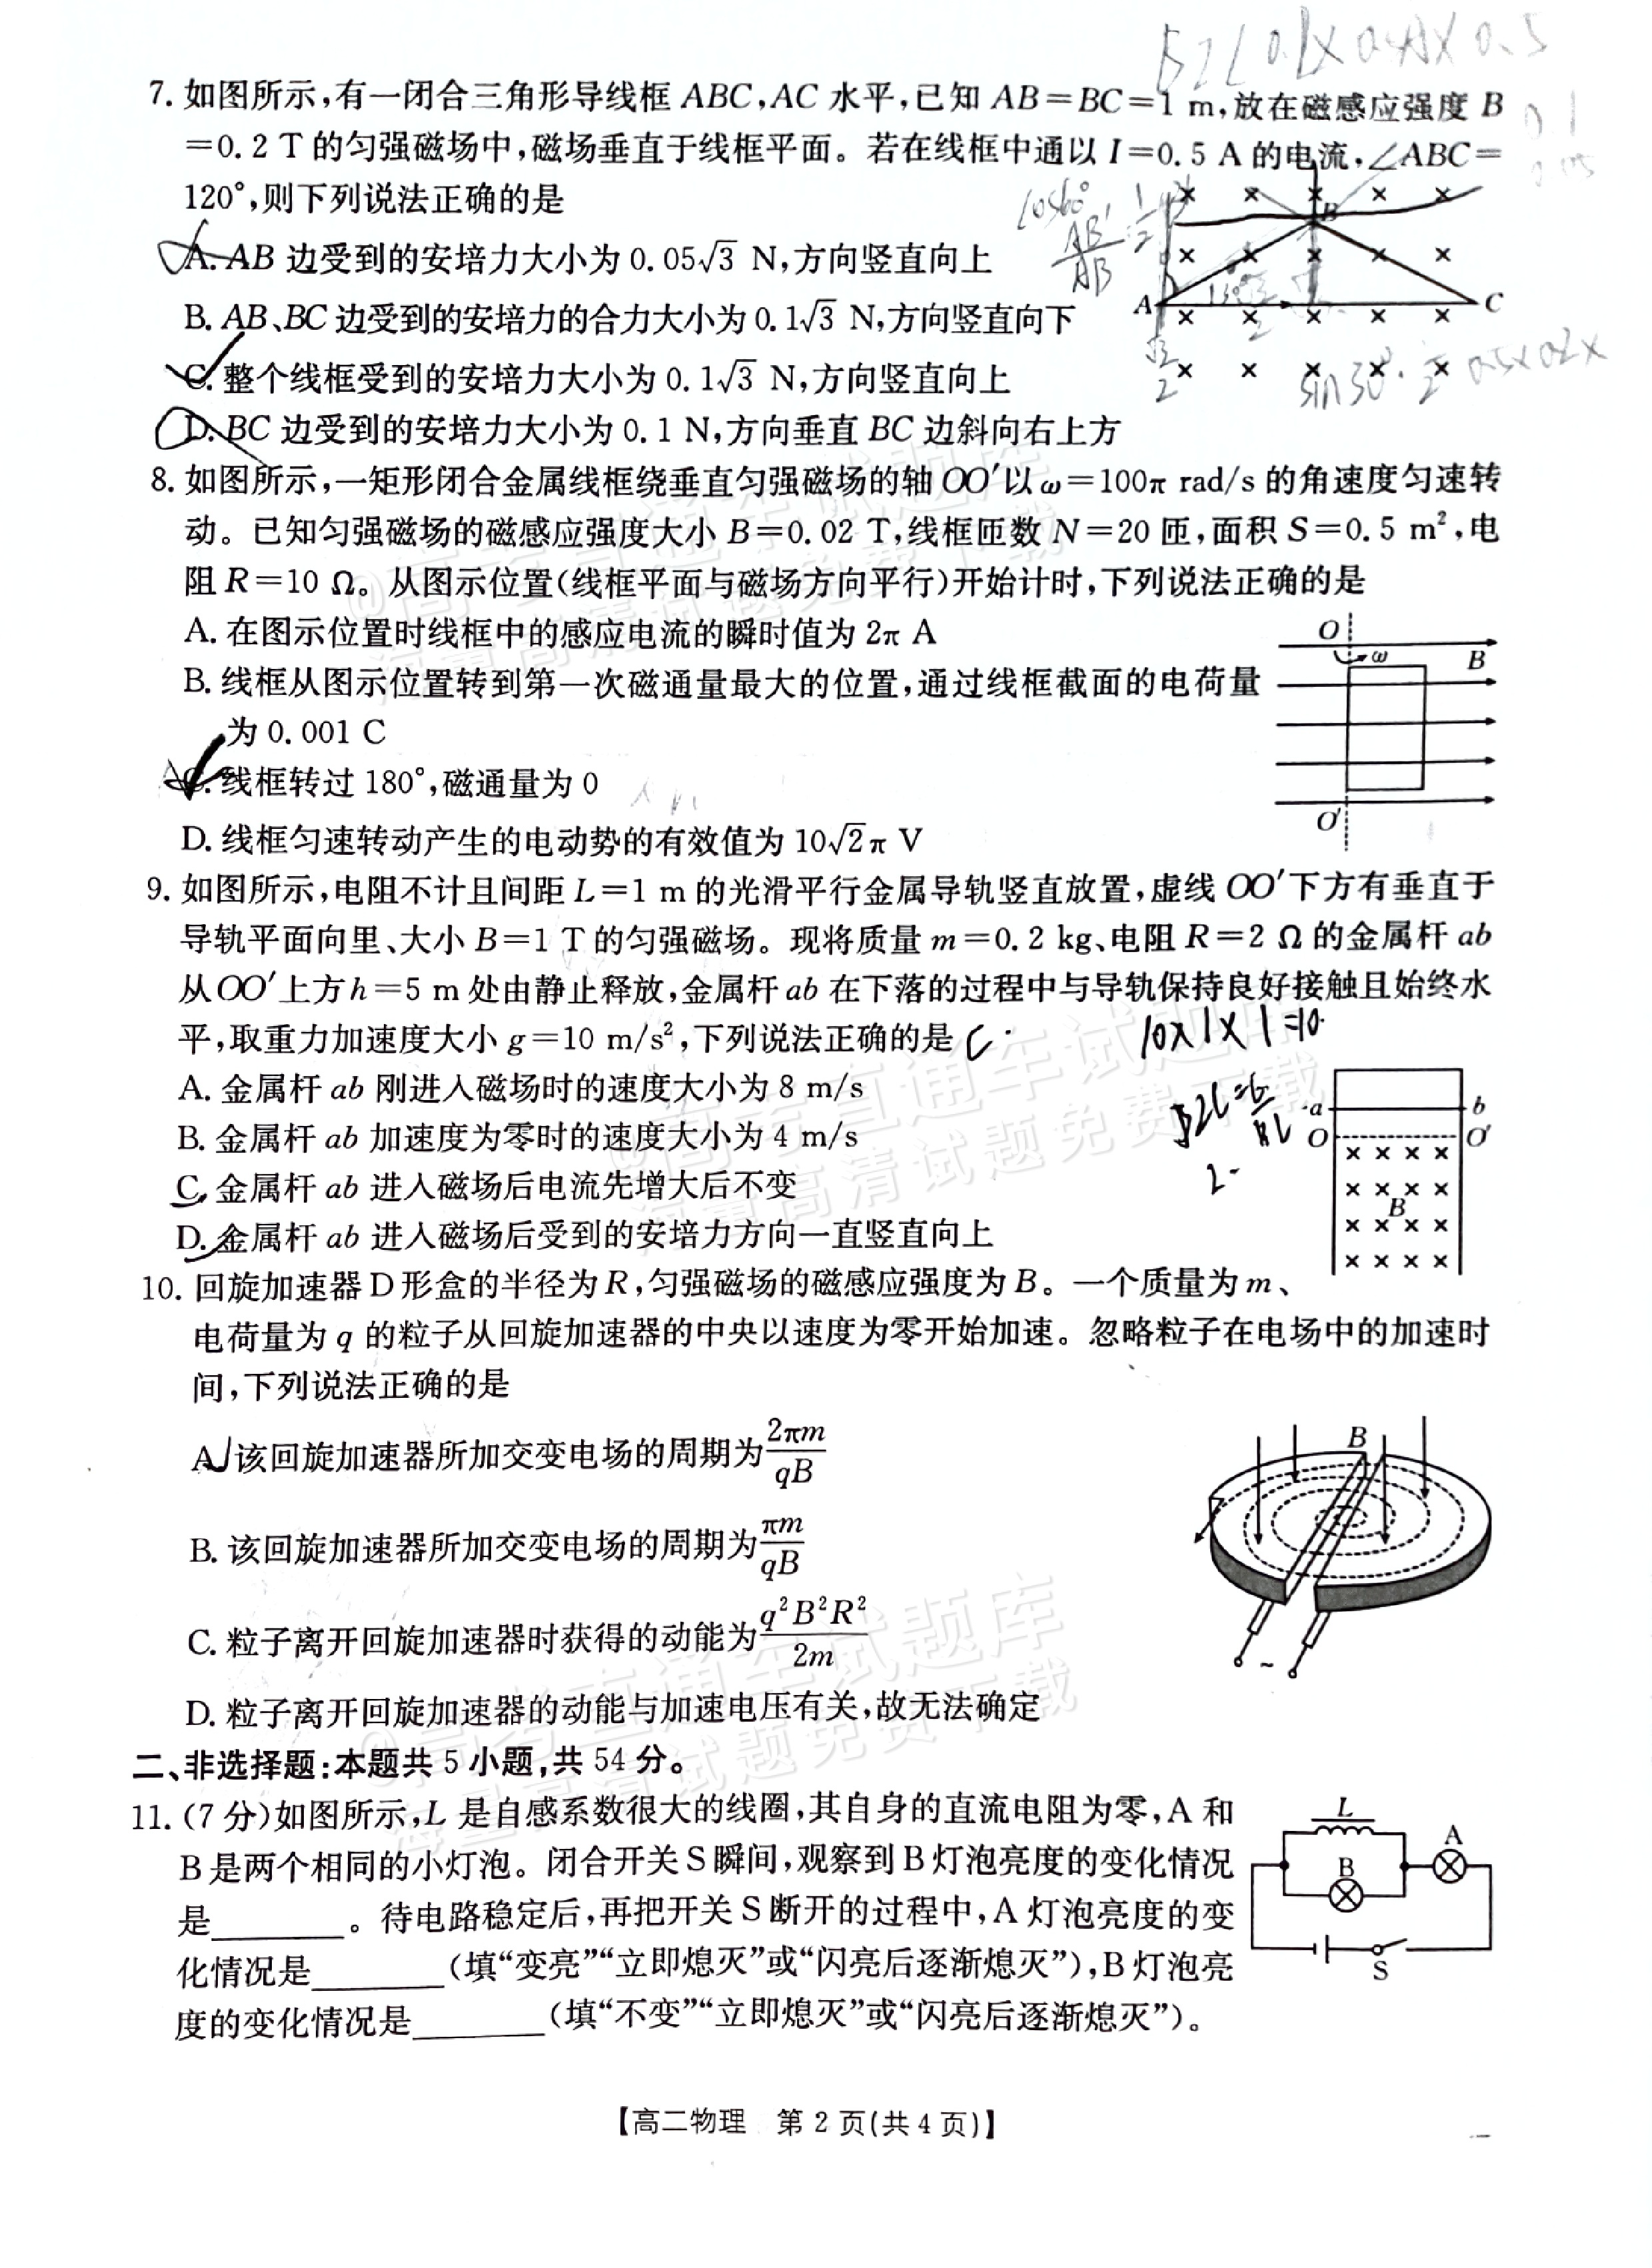 7. 如图所示,有一闭合三角形导线框 ABC,AC 水平,已知 AB=BC=1 m,放在磁感应强度 B
=0.2 T 的匀强磁场中,磁场垂直于线框平面。若在线框中通以 I=0.5 A 的电流,∠ABC=
120°,则下列说法正确的是
A. AB 边受到的安培力大小为 0.05√3 N,方向竖直向上
B. AB、BC 边受到的安培力的合力大小为 0.1√3 N,方向竖直向下
C. 整个线框受到的安培力大小为 0.1√3 N,方向竖直向上
D. BC 边受到的安培力大小为 0.1 N,方向垂直 BC 边斜向右上方
B
A
C
cos60°
sin30°
8. 如图所示,一矩形闭合金属线框绕垂直匀强磁场的轴 OO′以 ω=100π rad/s 的角速度匀速转
动。已知匀强磁场的磁感应强度大小 B=0.02 T,线框匝数 N=20 匝,面积 S=0.5 m²,电
阻 R=10 Ω。从图示位置(线框平面与磁场方向平行)开始计时,下列说法正确的是
A. 在图示位置时线框中的感应电流的瞬时值为 2π A
B. 线框从图示位置转到第一次磁通量最大的位置,通过线框截面的电荷量
为 0.001 C
C. 线框转过 180°,磁通量为 0
D. 线框匀速转动产生的电动势的有效值为 10√2π V
O
ω
B
O′
9. 如图所示,电阻不计且间距 L=1 m 的光滑平行金属导轨竖直放置,虚线 OO′下方有垂直于
导轨平面向里、大小 B=1 T 的匀强磁场。现将质量 m=0.2 kg、电阻 R=2 Ω 的金属杆 ab
从OO′上方 h=5 m 处由静止释放,金属杆 ab 在下落的过程中与导轨保持良好接触且始终水
平,取重力加速度大小 g=10 m/s²,下列说法正确的是 C
10×1×1=10
A. 金属杆 ab 刚进入磁场时的速度大小为 8 m/s
B. 金属杆 ab 加速度为零时的速度大小为 4 m/s
C. 金属杆 ab 进入磁场后电流先增大后不变
D. 金属杆 ab 进入磁场后受到的安培力方向一直竖直向上
a b
O O′
B
10. 回旋加速器 D 形盒的半径为 R,匀强磁场的磁感应强度为 B。一个质量为 m、
电荷量为 q 的粒子从回旋加速器的中央以速度为零开始加速。忽略粒子在电场中的加速时
间,下列说法正确的是
A. 该回旋加速器所加交变电场的周期为 2πm/qB
B. 该回旋加速器所加交变电场的周期为 πm/qB
C. 粒子离开回旋加速器时获得的动能为 q²B²R²/2m
D. 粒子离开回旋加速器的动能与加速电压有关,故无法确定
B
~
二、非选择题:本题共 5 小题,共 54 分。
11. (7 分)如图所示,L 是自感系数很大的线圈,其自身的直流电阻为零,A 和
B 是两个相同的小灯泡。闭合开关 S 瞬间,观察到 B 灯泡亮度的变化情况
是________。待电路稳定后,再把开关 S 断开的过程中,A 灯泡亮度的变
化情况是________(填“变亮”“立即熄灭”或“闪亮后逐渐熄灭”),B 灯泡亮
度的变化情况是________(填“不变”“立即熄灭”或“闪亮后逐渐熄灭”)。
L
A
B
S
【高二物理 第 2 页(共 4 页)】
@高考直通车试题库
海量高清试题免费下载
@高考直通车试题库
海量高清试题免费下载
@高考直通车试题库
海量高清试题免费下载